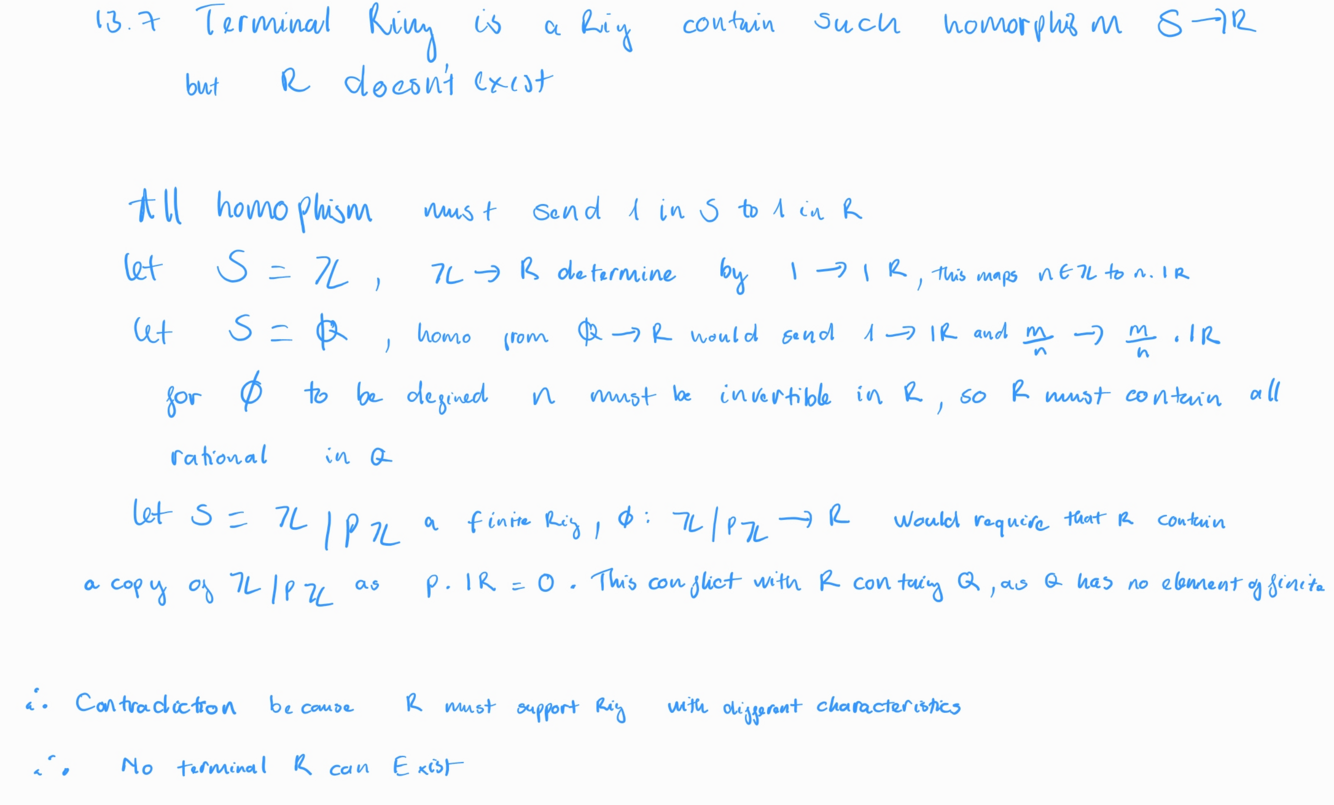 13.7 Terminal Ring is a Rig contain such homorphism S → R
but R doesn't exist
All homophism must send 1 in S to 1 in R
let S = ℤ , ℤ → R determine by 1 → 1R, this maps n ∈ ℤ to n. 1R
let S = ℚ , homo from ℚ → R would send 1 → 1R and m/n → m/n . 1R
for ϕ to be defined n must be invertible in R, so R must contain all
rational in Q
let S = ℤ/pℤ a finite Rig, ϕ: ℤ/pℤ → R would require that R contain
a copy of ℤ/pℤ as p. 1R = 0 . This conflict with R containg Q, as Q has no element of finite
∴ Contradiction because R must support Rig with different characteristics
∴ No terminal R can Exist